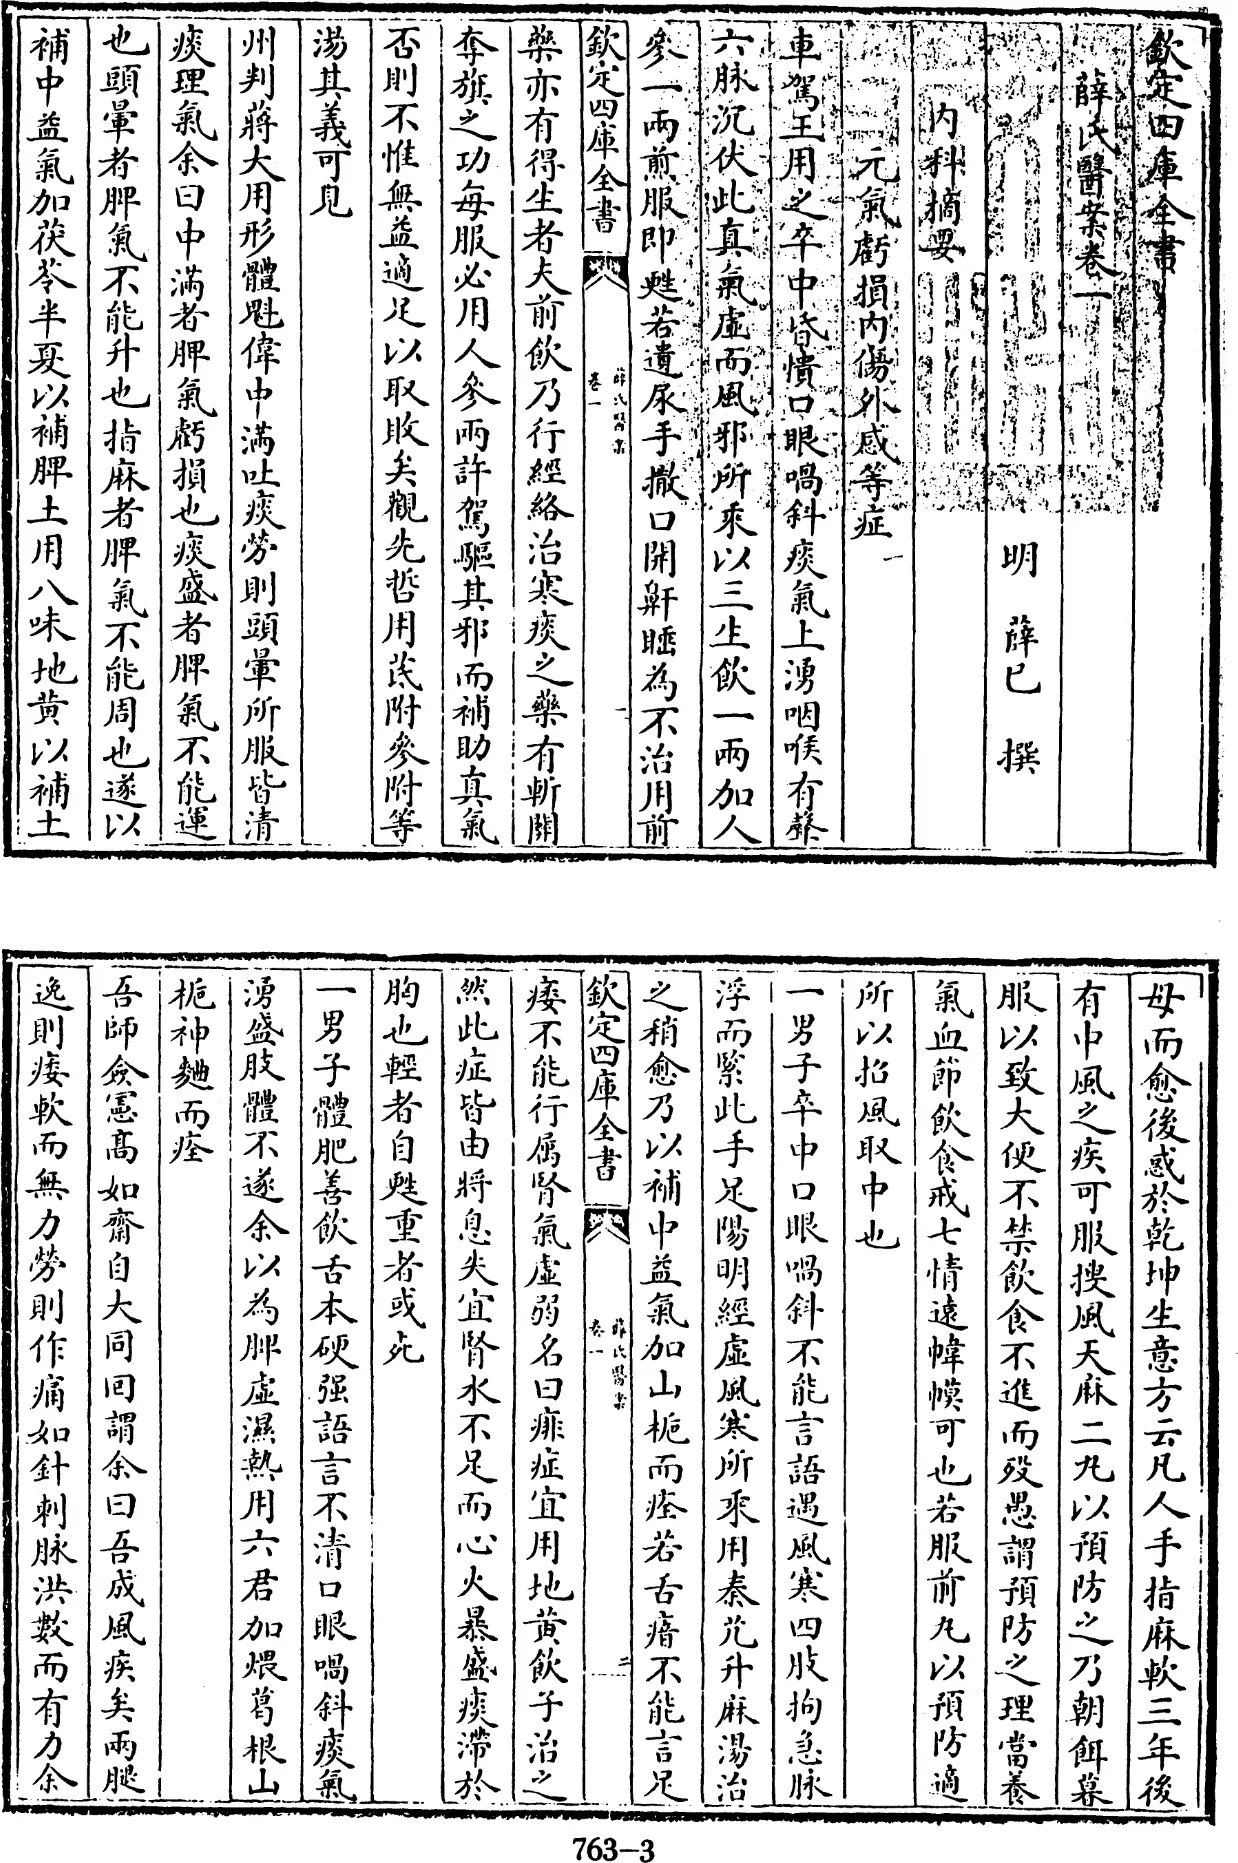 欽定四庫全書
薛氏醫案卷一
明 薛己 撰
内科摘要
元氣虧損内傷外感等症一
車駕王用之卒中昏憒口眼喎斜痰氣上湧咽喉有聲
六脉沉伏此真氣虛而風邪所乗以三生飲一兩加人
參一兩煎服即甦若遺尿手撒口開鼾睡為不治用前
欽定四庫全書
薛氏醫案
卷一
一
藥亦有得生者夫前飲乃行經絡治寒痰之藥有斬關
奪旗之功每服必用人參兩許駕驅其邪而補助真氣
否則不惟無益適足以取敗矣觀先哲用芪附參附等
湯其義可見
州判蔣大用形體魁偉中滿吐痰勞則頭暈所服皆清
痰理氣余曰中滿者脾氣虧損也痰盛者脾氣不能運
也頭暈者脾氣不能升也指麻者脾氣不能周也遂以
補中益氣加茯苓半夏以補脾土用八味地黄以補土
母而愈後惑於乾坤生意方云凡人手指麻軟三年後
有中風之疾可服搜風天麻二丸以預防之乃朝餌暮
服以致大便不禁飲食不進而歿愚謂預防之理當養
氣血節飲食戒七情遠幃幙可也若服前丸以預防適
所以招風取中也
一男子卒中口眼喎斜不能言語遇風寒四肢拘急脉
浮而緊此手足陽明經虛風寒所乗用秦艽升麻湯治
之稍愈乃以補中益氣加山梔而痊若舌瘖不能言足
欽定四庫全書
薛氏醫案
卷一
二
痿不能行屬腎氣虛弱名曰痱症宜用地黄飲子治之
然此症皆由將息失宜腎水不足而心火暴盛痰滯於
胸也輕者自甦重者或死
一男子體肥善飲舌本硬强語言不清口眼喎斜痰氣
湧盛肢體不遂余以為脾虛濕熱用六君加煨葛根山
梔神麯而痊
吾師僉憲高如齋自大同回謂余曰吾成風疾矣兩腿
逸則痿軟而無力勞則作痛如針刺脉洪數而有力余
763-3